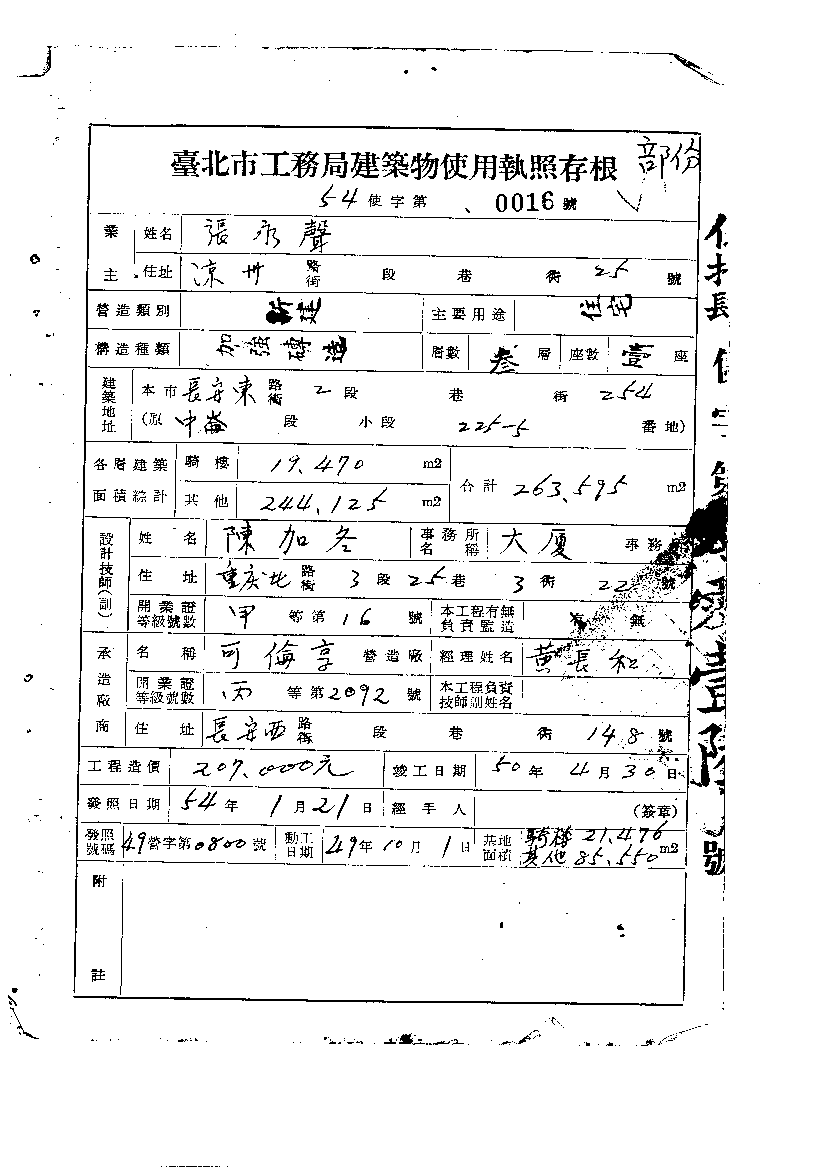 臺北市工務局建築物使用執照存根 部份
54使字第、0016號
業主 姓名 張永聲
住址 涼州 路街 段 巷 街 25 號
營造類別 新建 主要用途 住宅
構造種類 加強磚造 層數 叁層 座數 壹座
建築地址 本市長安東路街 2段 巷 街 254
(原 中崙 段 小段 225-5 番地)
各層建築面積綜計 騎樓 19.470 m2 合計 263.595 m2
其他 244.125 m2
設計技師(訓) 姓名 陳加冬 事務所名稱 大廈 事務
住址 重慶北路街 3段 25巷 3街 22 號
開業證等級號數 甲 等第 16 號 本工程有無負責監造 有 無
承造廠商 名稱 可倫亨 營造廠 經理姓名 黃長和
開業證等級號數 丙 等第2092 號 本工程負責技師副姓名
住址 長安西路街 段 巷 街 148 號
工程造價 207.000元 竣工日期 50年 4月30日
發照日期 54年 1月21日 經手人 (簽章)
發照號碼 49營字第0800號 動工日期 49年10月1日 基地面積 騎樓 21.476 其他 85.550 m2
附註